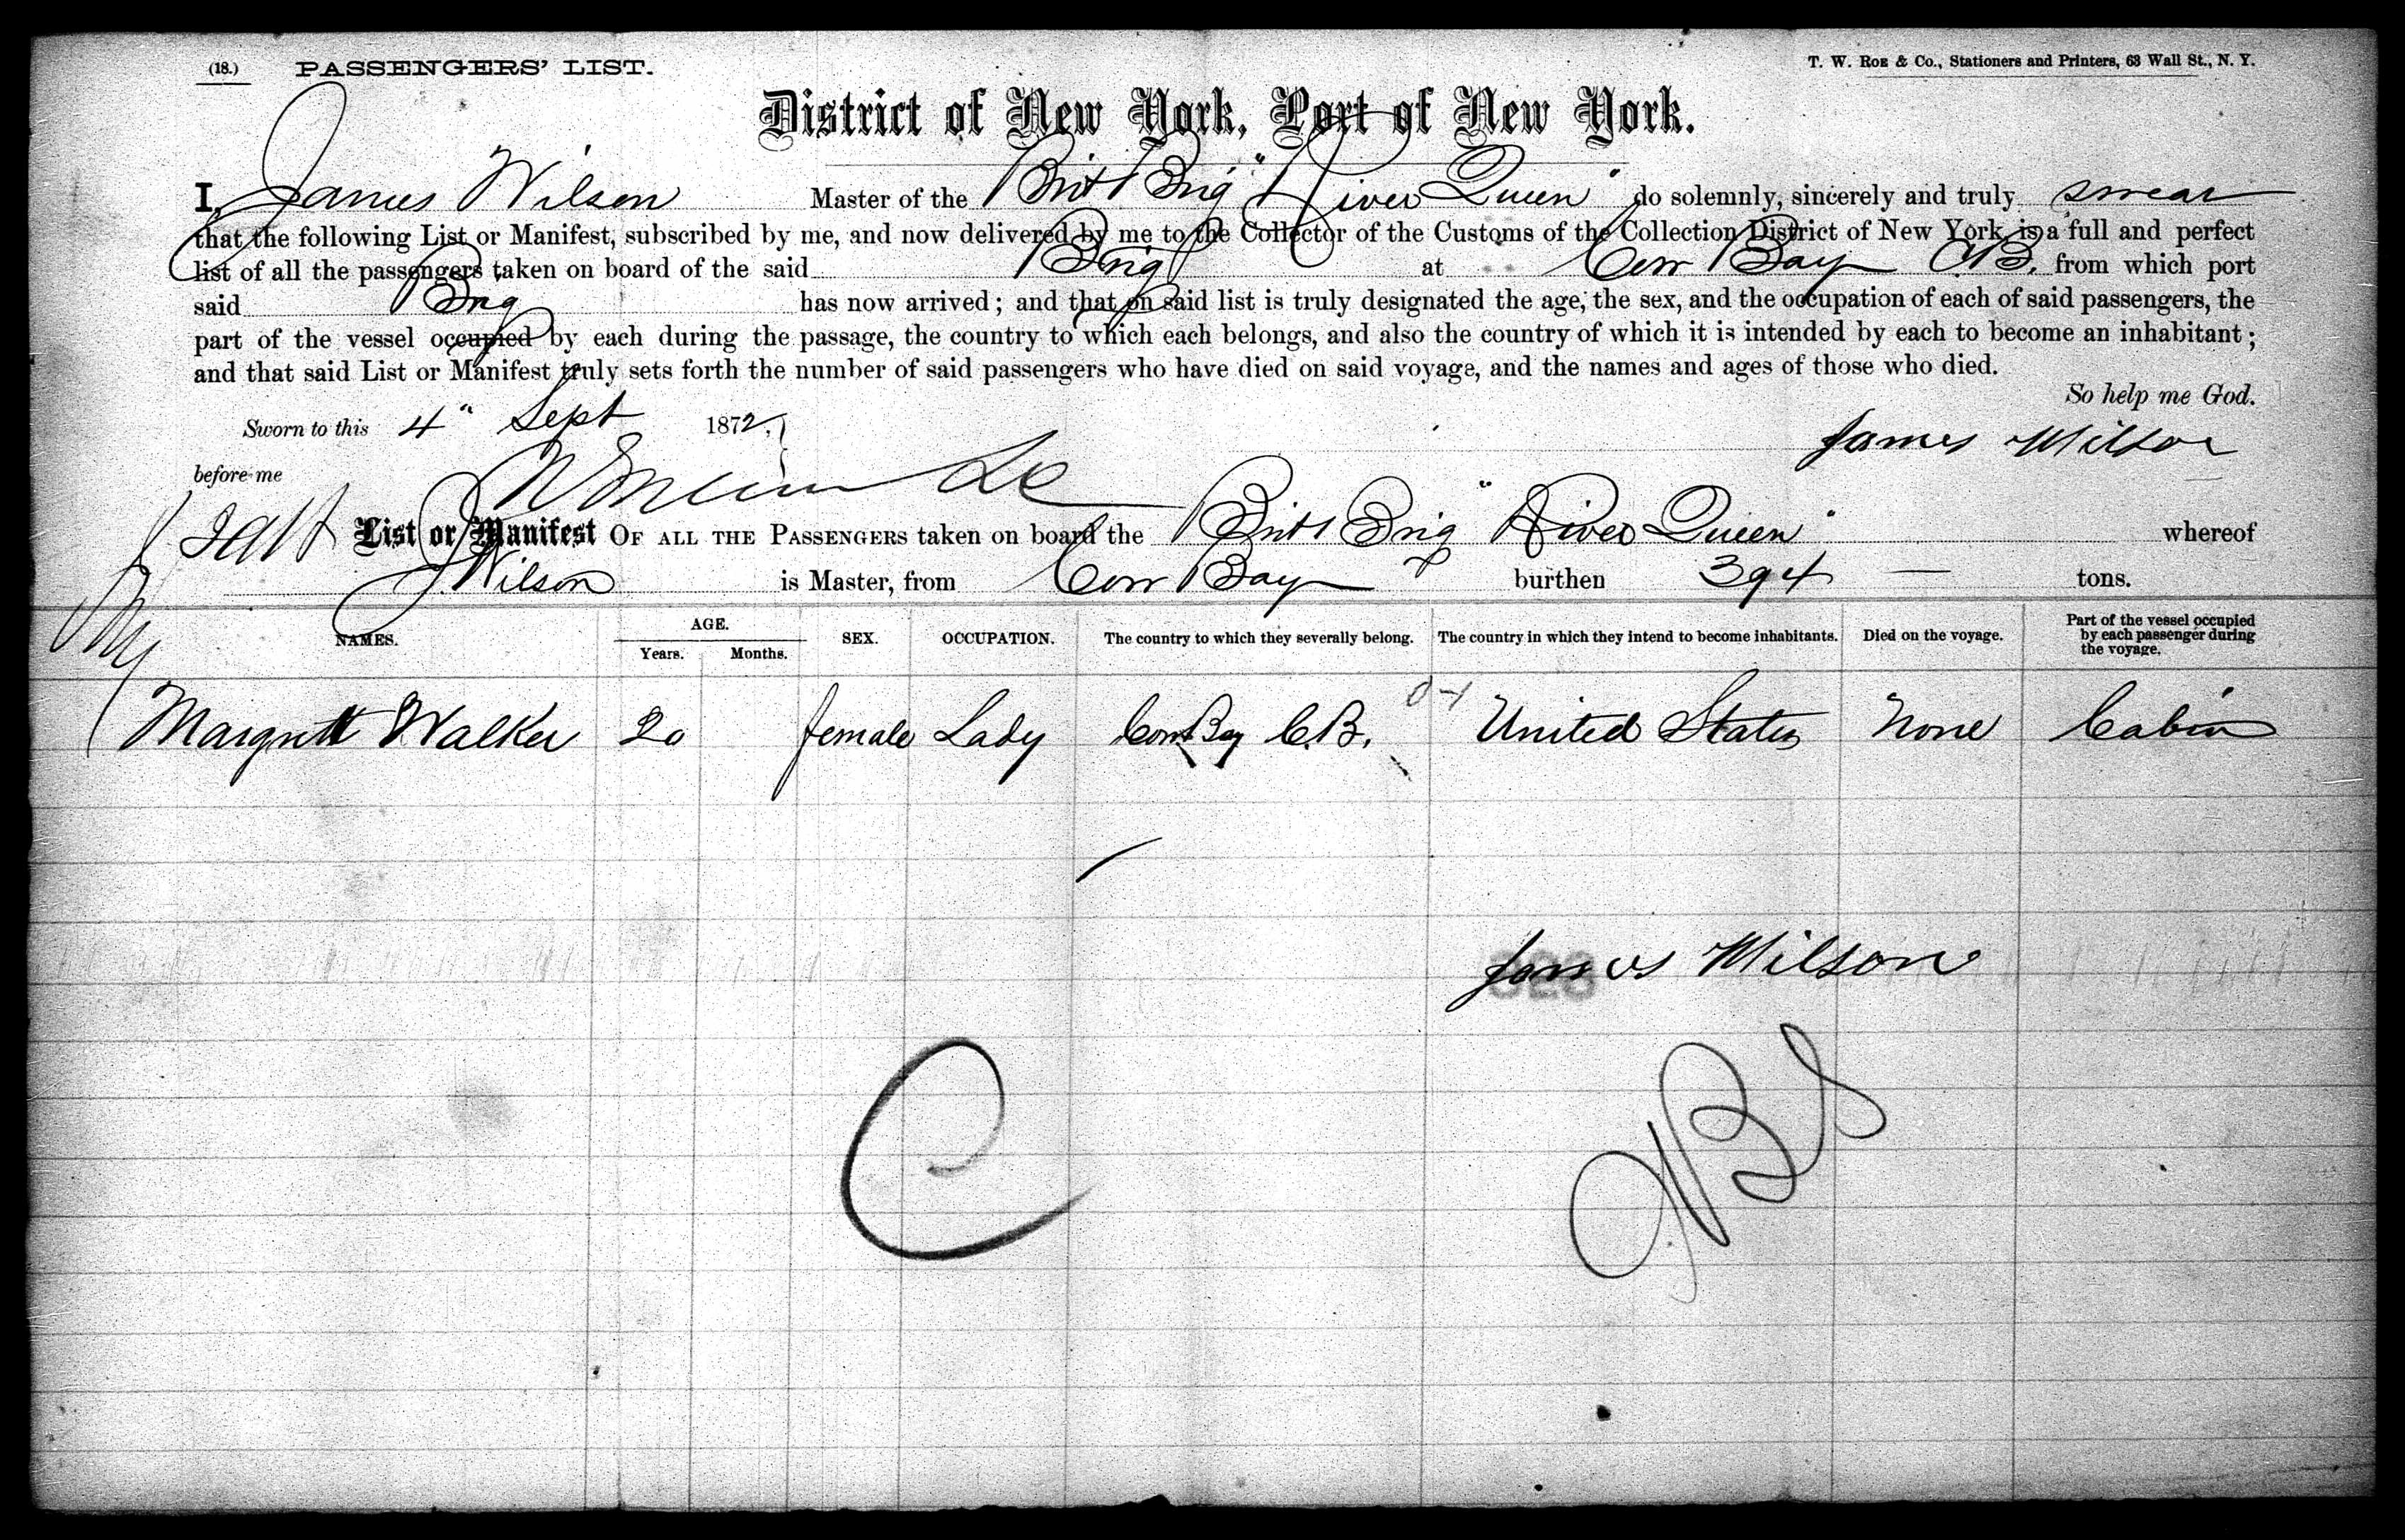 (18.) PASSENGERS' LIST.
T. W. Roe & Co., Stationers and Printers, 63 Wall St., N. Y.
District of New York, Port of New York.
I, James Wilson Master of the Brit Brig "River Queen" do solemnly, sincerely and truly swear
that the following List or Manifest, subscribed by me, and now delivered by me to the Collector of the Customs of the Collection District of New York, is a full and perfect
list of all the passengers taken on board of the said Brig at Cow Bay C.B. from which port
said Brig has now arrived; and that on said list is truly designated the age, the sex, and the occupation of each of said passengers, the
part of the vessel occupied by each during the passage, the country to which each belongs, and also the country of which it is intended by each to become an inhabitant;
and that said List or Manifest truly sets forth the number of said passengers who have died on said voyage, and the names and ages of those who died.
So help me God.
Sworn to this 4" Sept 1872,
James Wilson
before me
List or Manifest OF ALL THE PASSENGERS taken on board the Brit Brig "River Queen" whereof
J. Wilson is Master, from Cow Bay burthen 394 — tons.
NAMES. AGE. Years. Months. SEX. OCCUPATION. The country to which they severally belong. The country in which they intend to become inhabitants. Died on the voyage. Part of the vessel occupied by each passenger during the voyage.
Margrett Walker 20 female Lady Cow Bay C.B. United States None Cabin
James Wilson
328
C